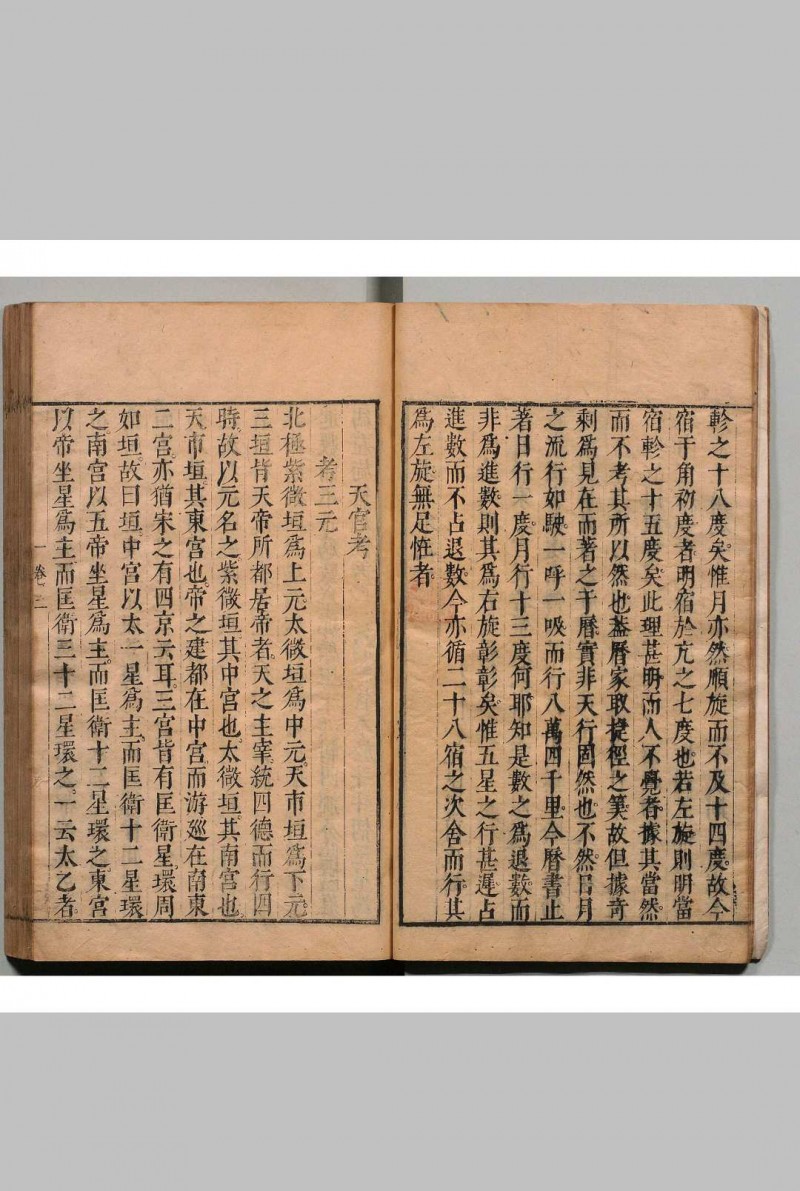 軫之十八度矣惟月亦然順旋而不及十四度故今
宿于角初度者明宿於亢之七度也若左旋則明當
宿軫之十五度矣此理甚明而人不覺者據其當然
而不考其所以然也蓋曆家取捷徑之筭故但據奇
剩爲見在而著之于曆實非天行固然也不然日月
之流行如駛一呼一吸而行八萬四千里今曆書止
著日行一度月行十三度何耶知是數之爲退數而
非爲進數則其爲右旋彰彰矣惟五星之行甚遲占
進數而不占退數今亦循二十八宿之次舍而行其
爲左旋無足恠者
天官考
考三元
北極紫微垣爲上元太微垣爲中元天市垣爲下元
三垣皆天帝所都居帝者天之主宰統四德而行四
時故以元名之紫微垣其中宮也太微垣其南宮也
天市垣其東宮也帝之建都在中宮而游巡在南東
二宮亦猶宋之有四京云耳三宮皆有匡衛星環周
如垣故曰垣中宮以太一星爲主而匡衛十二星環
之南宮以五帝坐星爲主而匡衛十二星環之東宮
以帝坐星爲主而匡衛三十二星環之一云太乙者
卷三